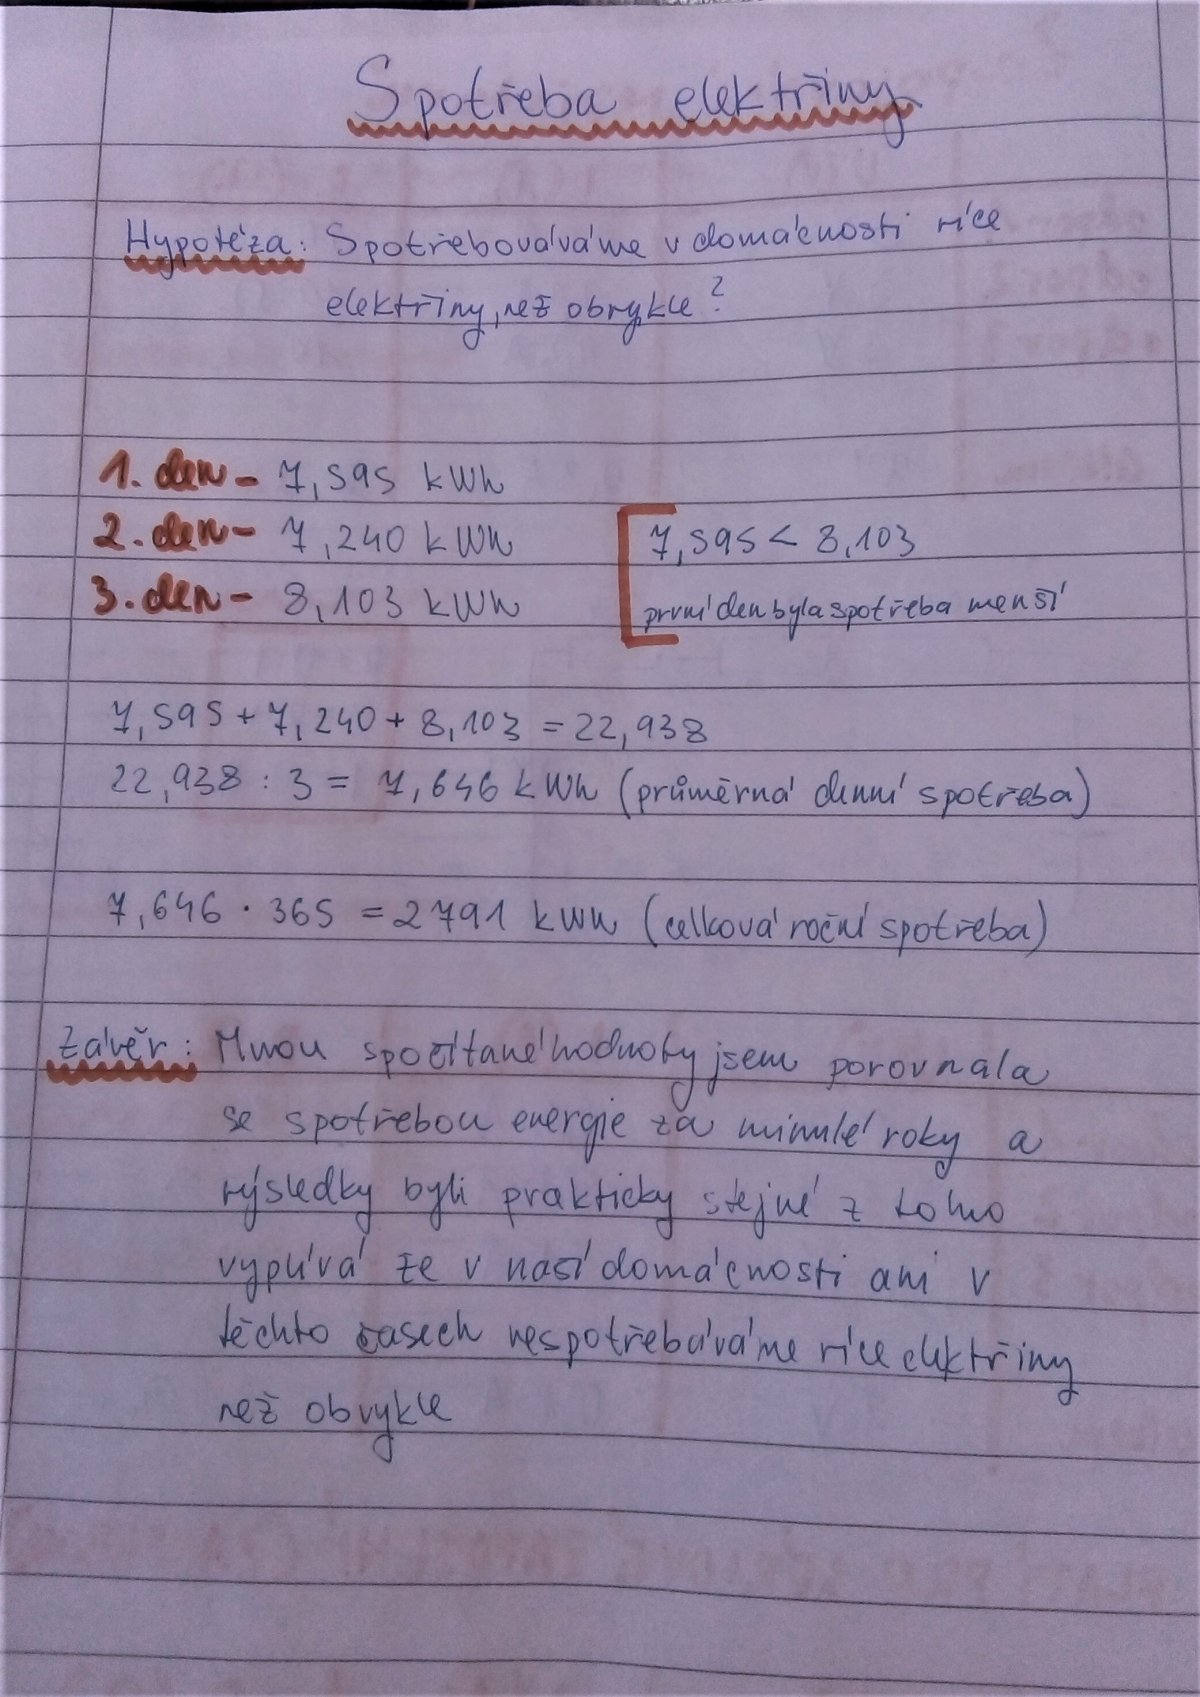 Spotřeba elektřiny
Hypotéza: Spotřebováváme v domácnosti více
elektřiny, než obvykle?
1. den - 7,595 kWh
2. den - 7,240 kWh
3. den - 8,103 kWh
7,595 < 8,103
první den byla spotřeba menší
7,595 + 7,240 + 8,103 = 22,938
22,938 : 3 = 7,646 kWh (průměrná denní spotřeba)
7,646 · 365 = 2791 kWh (celková roční spotřeba)
Závěr: Mnou spočítané hodnoty jsem porovnala
se spotřebou energie za minulé roky a
výsledky byli prakticky stejné z toho
vyplívá že v naší domácnosti ani v
těchto časech nespotřebáváme více elektřiny
než obvykle